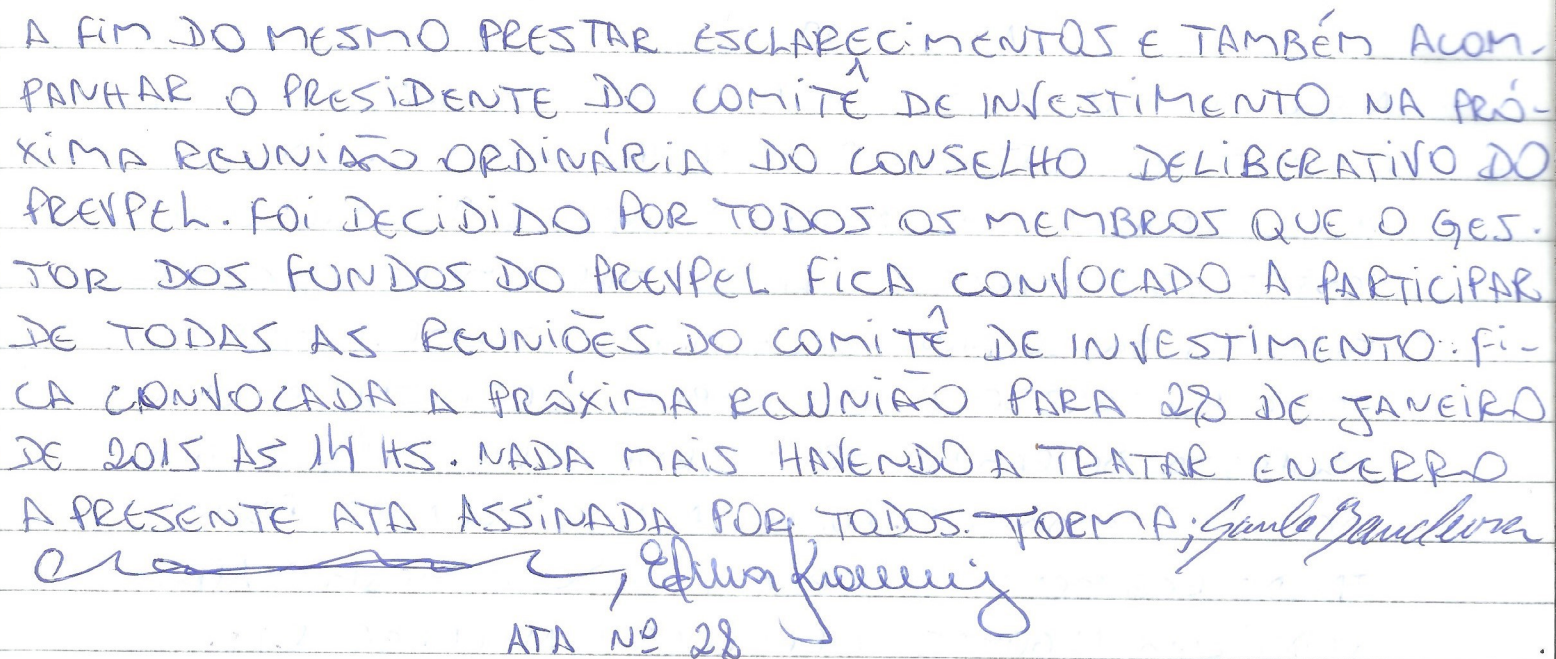 A FIM DO MESMO PRESTAR ESCLARECIMENTOS E TAMBÉM ACOM-
PANHAR O PRESIDENTE DO COMITÊ DE INVESTIMENTO NA PRÓ-
XIMA REUNIÃO ORDINÁRIA DO CONSELHO DELIBERATIVO DO
PREVPEL. FOI DECIDIDO POR TODOS OS MEMBROS QUE O GES-
TOR DOS FUNDOS DO PREVPEL FICA CONVOCADO A PARTICIPAR
DE TODAS AS REUNIÕES DO COMITÊ DE INVESTIMENTO. FI-
CA CONVOCADA A PRÓXIMA REUNIÃO PARA 28 DE JANEIRO
DE 2015 AS 14 HS. NADA MAIS HAVENDO A TRATAR ENCERRO
A PRESENTE ATA ASSINADA POR TODOS. TORMA;
ATA Nº 28